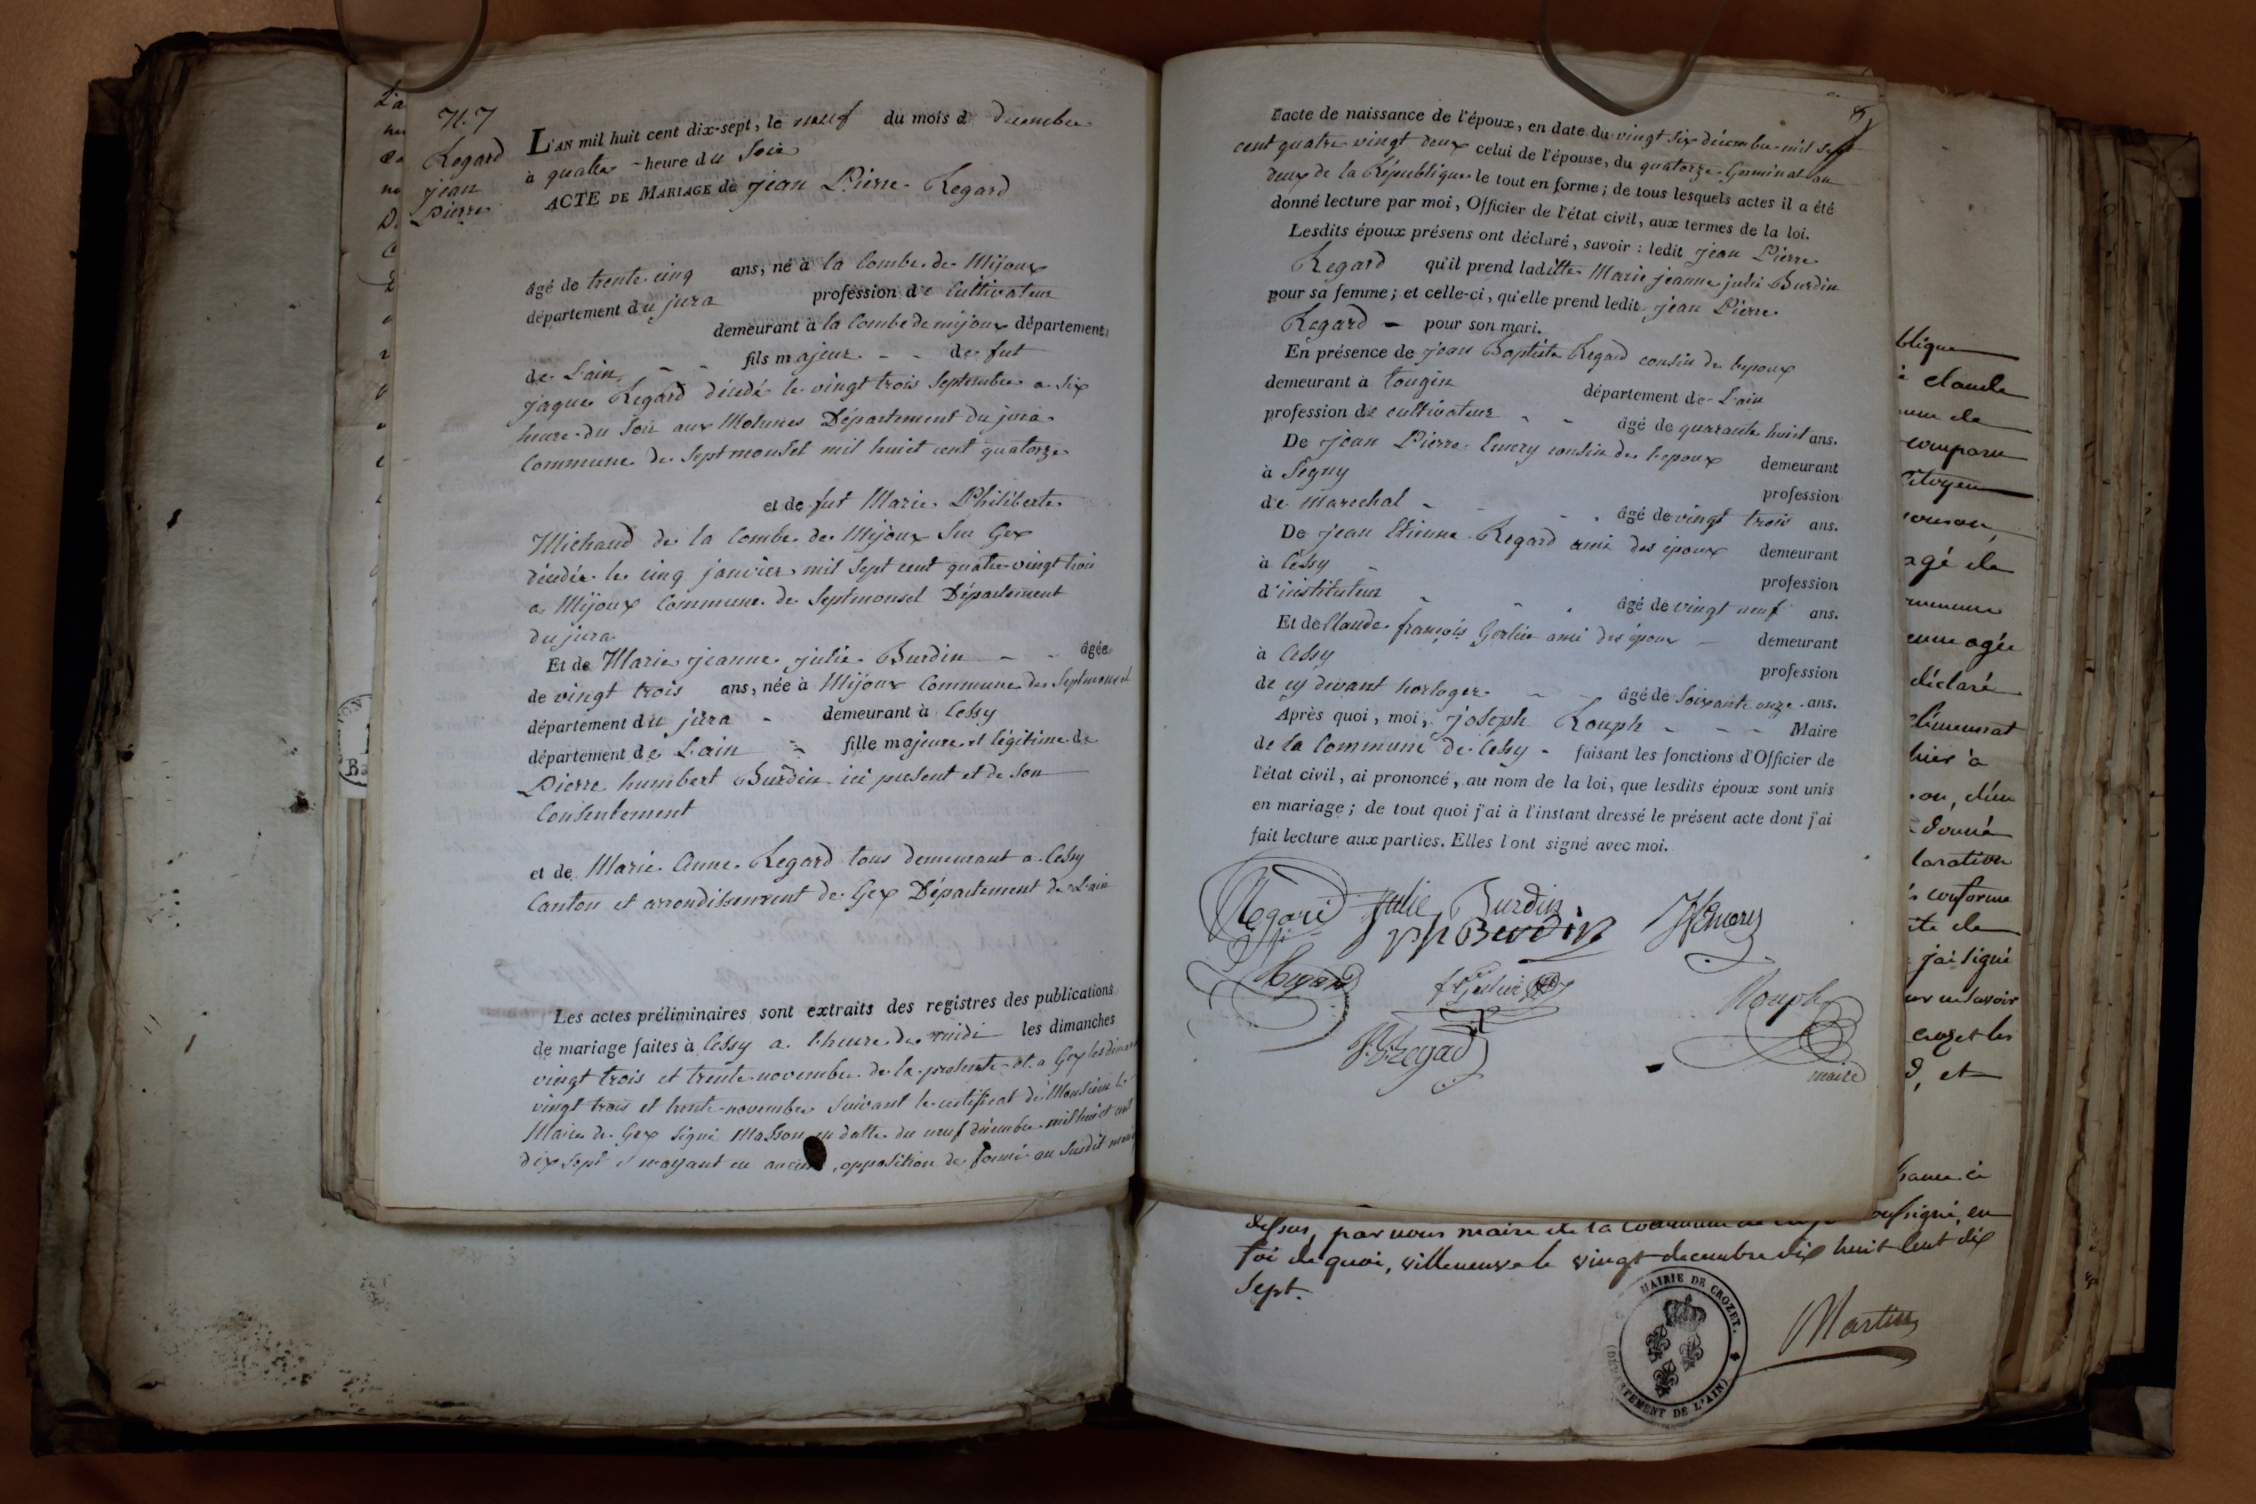 N. 7
Regard
jean
Pierre
L'AN mil huit cent dix-sept, le neuf du mois d decembre
à quatre heure du Soir
ACTE DE MARIAGE de jean Pierre Regard
âgé de trente cinq ans, né à la Combe de Mijoux
département du jura profession de Cultivateur
demeurant à la Combe de mijoux département
de L'ain fils majeur de fut
jaques Regard décédé le vingt trois Septembre a Six
heure du Soir aux Molunes Département Du jura
Commune de Septmonsel mil huict cent quatorze
et de fut Marie Philiberte
Michaud de la Combe de Mijoux Sur Gex
décédée le cinq janvier mil Sept cent quatre vingt trois
a Mijoux Commune de Septmonsel Département
du jura
Et de Marie jeanne julie Burdin âgée
de vingt trois ans, née à Mijoux Commune de Septmonsel
département du jura demeurant à Cessy
département de L'ain fille majeure et légitime de
Pierre humbert Burdin ici present et de Son
Consentement
et de Marie Anne Regard tous demeurant a Cessy
Canton et arrondissement de Gex Département de L'ain
Les actes préliminaires sont extraits des registres des publications
de mariage faites à Cessy a l'heure de midi les dimanches
vingt trois et trente novembre de la presente et a Gex les
vingt trois et trente novembre Suivant le certificat de Monsieur le
Maire de Gex Signé Masson en datte du neuf décembre mil huict cent
dix Sept opposition de formé au Susdit
L'acte de naissance de l'époux, en date du vingt six décembre mil sept
cent quatre vingt deux celui de l'épouse, du quatorze Germinal an
deux de la République le tout en forme; de tous lesquels actes il a été
donné lecture par moi, Officier de l'état civil, aux termes de la loi.
Lesdits époux présens ont déclaré, savoir : ledit jean Pierre
Regard qu'il prend laditte Marie jeanne julie Burdin
pour sa femme; et celle-ci, qu'elle prend ledit jean Pierre
Regard pour son mari.
En présence de jean Baptiste Regard cousin de l'epoux
demeurant à tougin département de L'ain
profession de cultivateur âgé de quarante huict ans.
De jean Pierre Emery cousin de l'epoux demeurant
à Segny profession
de Marechal âgé de vingt trois ans.
De jean Etienne Regard ami des époux demeurant
à Cessy profession
d'instituteur âgé de vingt neuf ans.
Et de Claude françois Gerlier ami des époux demeurant
à Cessy profession
de cy devant horloger âgé de Soixante onze ans.
Après quoi, moi, joseph Rouph Maire
de la Commune de Cessy faisant les fonctions d'Officier de
l'état civil, ai prononcé, au nom de la loi, que lesdits époux sont unis
en mariage; de tout quoi j'ai à l'instant dressé le présent acte dont j'ai
fait lecture aux parties. Elles l'ont signé avec moi.
Regard Julie Burdin
ph Burdin Emery
Regard
Rouph
Regad
maire
blique
claude
comparu
citoyen
agé de
agée
déclaré
hier à
donné
claration
conforme
j'ai signé
savoir
crozet les
et
dessus, par nous maire de la Commune de soussigné, en
foi de quoi, villeneuve le vingt decembre dix huit Cent dix
Sept.
MAIRIE DE CROZET.
(DÉPARTEMENT DE L'AIN)
Martin